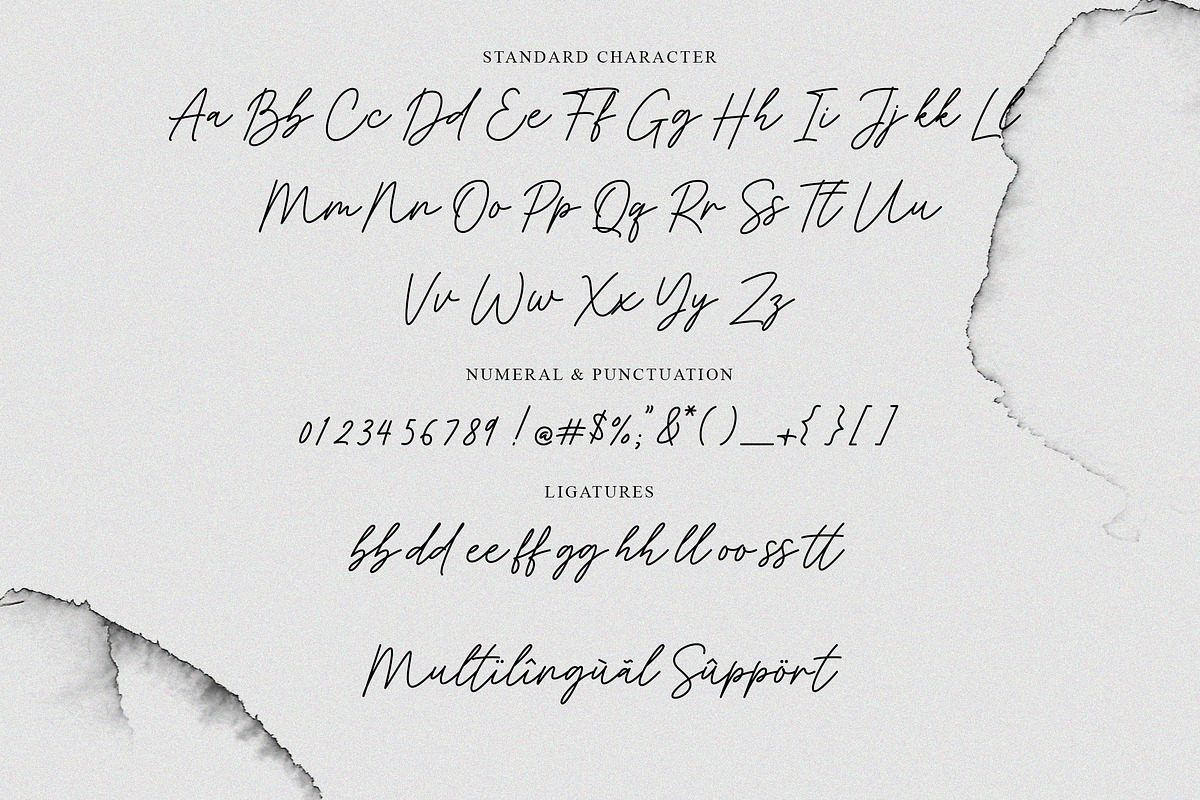 STANDARD CHARACTER
Aa Bb Cc Dd Ee Ff Gg Hh Ii Jj kk Ll
Mm Nn Oo Pp Qq Rr Ss Tt Uu
Vv Ww Xx Yy Zz
NUMERAL & PUNCTUATION
0123456789 ! @#$%;"&*( )_+{ }[ ]
LIGATURES
bb dd ee ff gg hh ll oo ss tt
Multïlîngùăl Sûppört